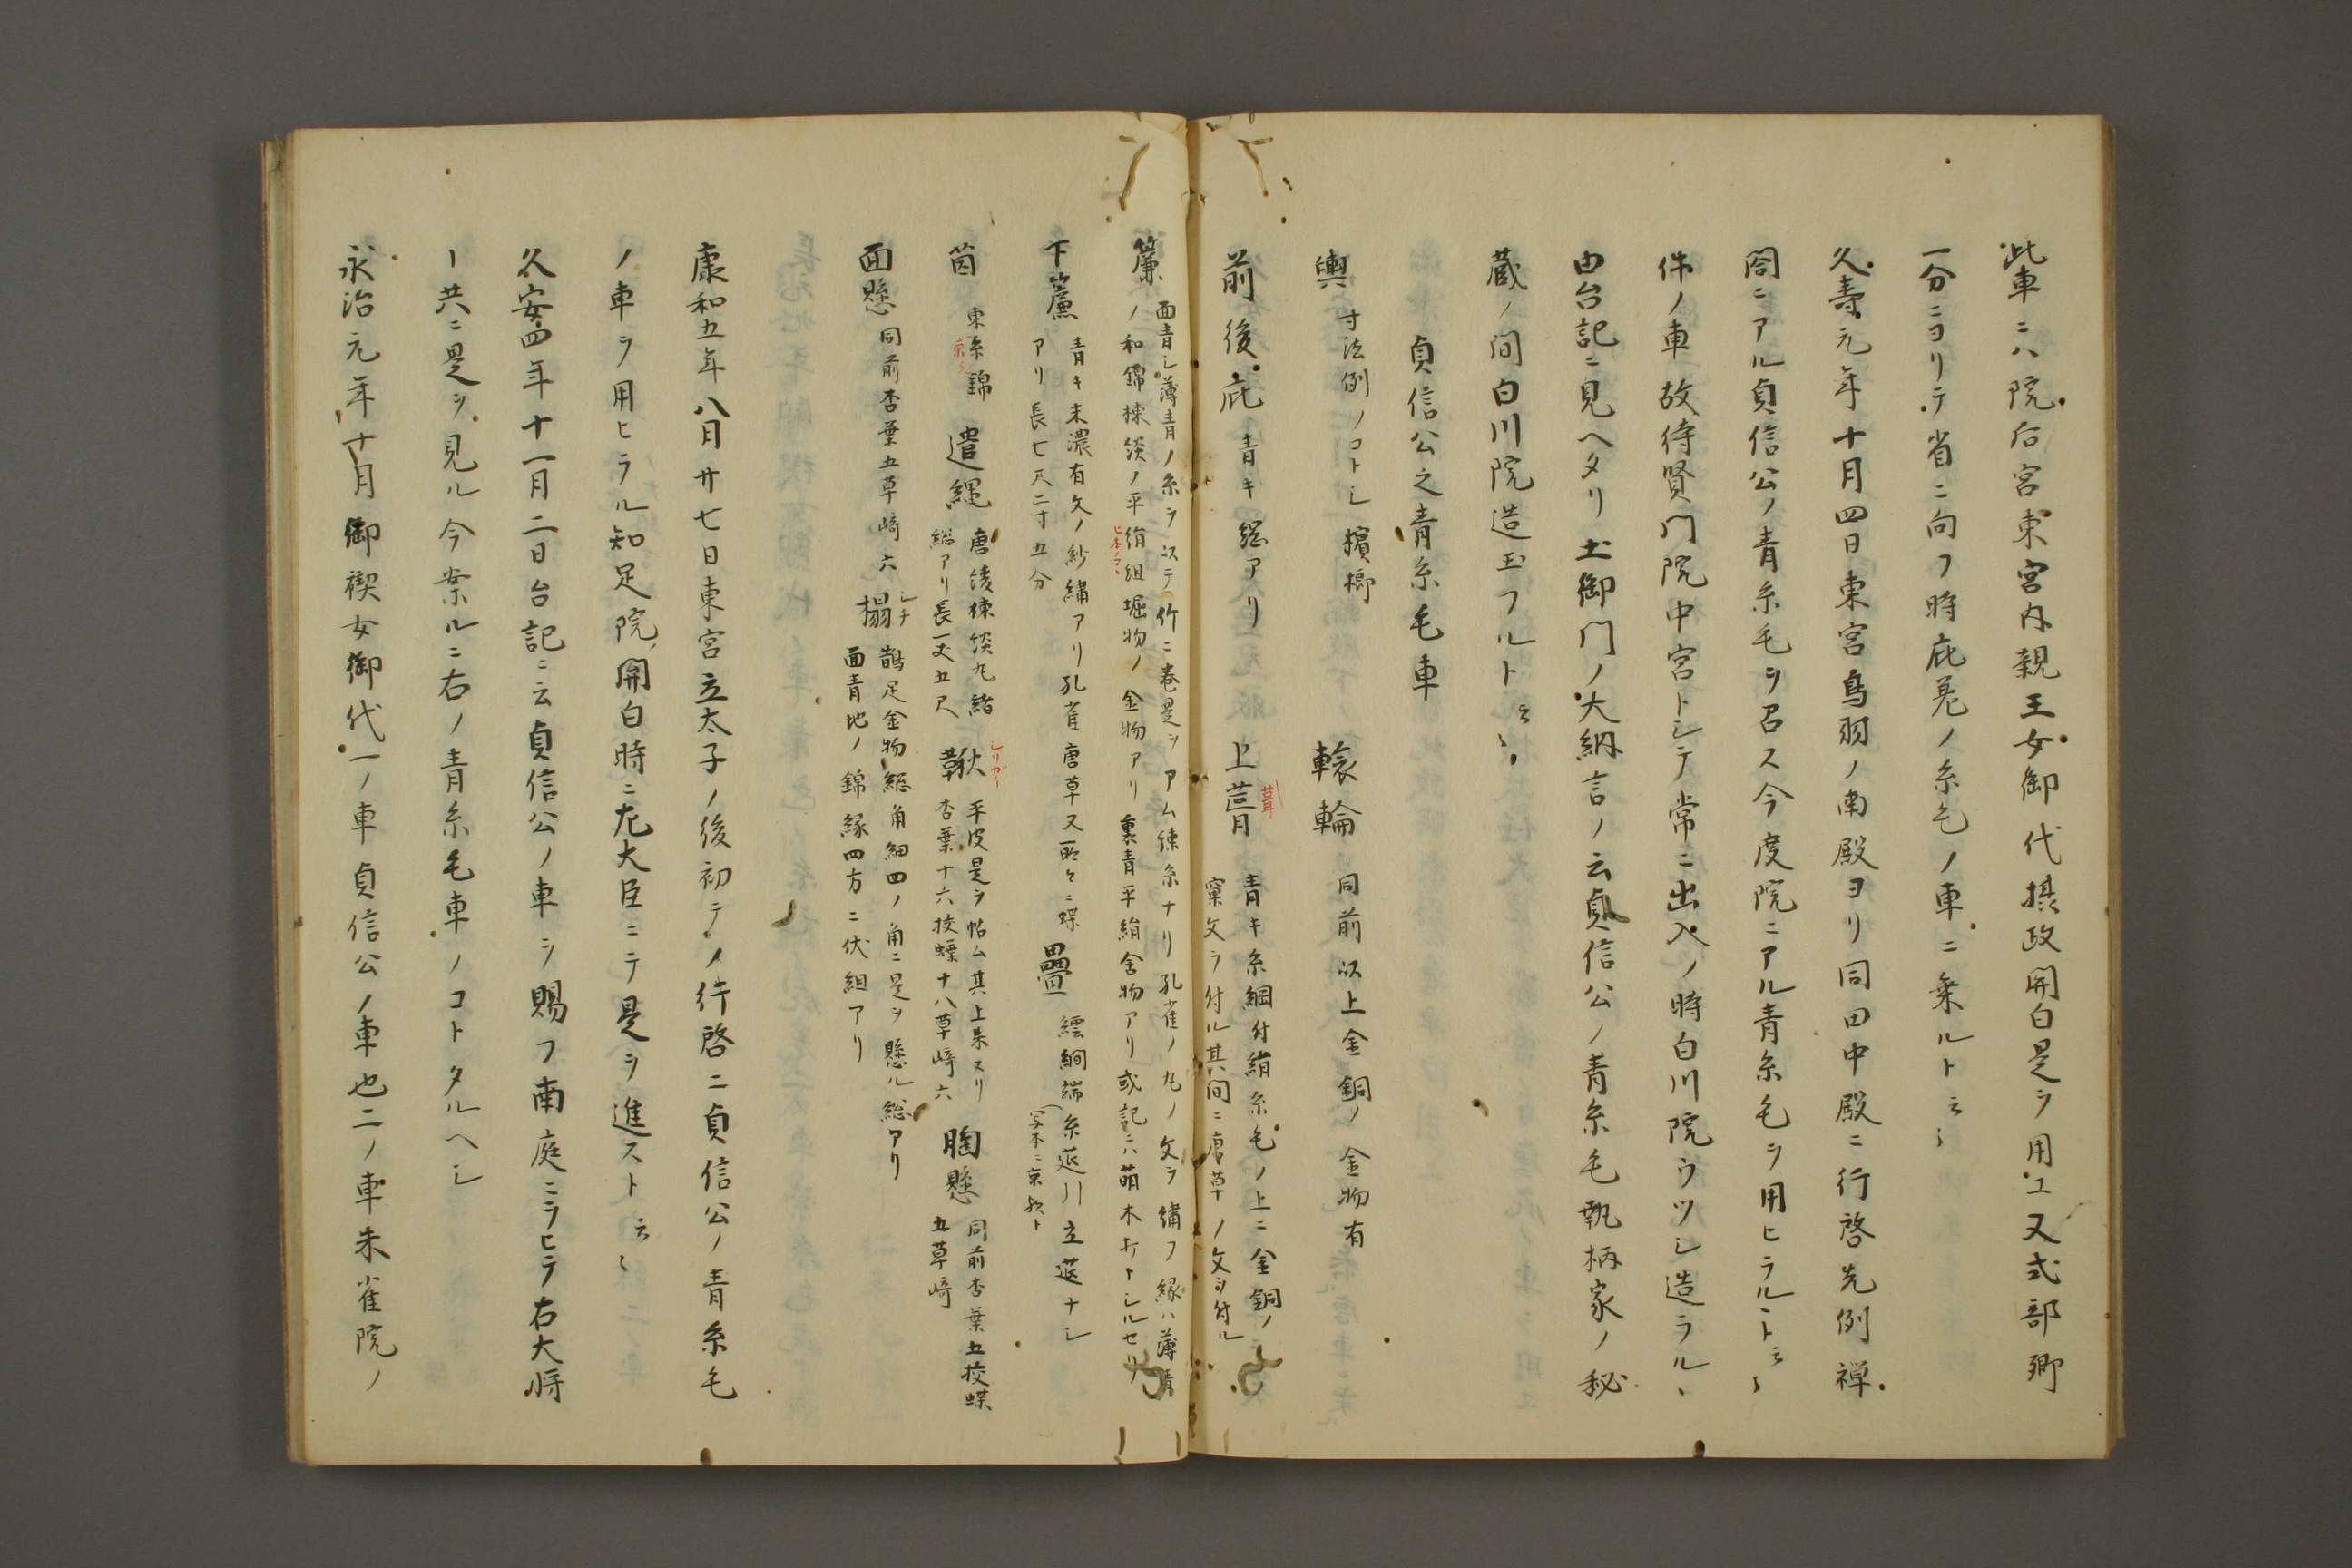 此車ニハ院后宮東宮内親王女御代摂政関白是ヲ用ユ又式部卿
一分ニヨリテ省ニ向フ時庇差ノ糸毛ノ車ニ乗ルト云〻
久寿元年十月四日東宮鳥羽ノ南殿ヨリ同田中殿ニ行啓先例禅
閤ニアル貞信公ノ青糸毛ヲ召ス今度院ニアル青糸毛ヲ用ヒラルヽト云〻
件ノ車故待賢門院中宮トシテ常ニ出入ノ時白川院ウツシ造ラルヽ
由台記ニ見ヘタリ土御門ノ大納言ノ云貞信公ノ青糸毛執柄家ノ秘
蔵ノ間白川院造玉フルト云〻
貞信公之青糸毛車
輿 寸法例ノコトシ檳榔 轅輪 同前以上金銅ノ金物有
前後庇 青キ総アリ 上葺 葺 青キ糸綱付絹糸毛ノ上ニ金銅ノ
窠文ヲ付ル其間ニ唐草ノ文ヲ付ル
簾 面青シ薄青ノ糸ヲ以テ竹ニ巻是ヲアム練糸ナリ孔雀ノ丸ノ文ヲ繍フ縁ハ薄青
ノ和錦棟淡ノ平絹組堀物ノ金物アリ裏青平絹金物アリ或記ニハ萌木打トシルセリ
下簾 青キ末濃有文ノ紗繍アリ孔雀唐草又所々ニ蝶
アリ長七尺二寸五分 疊 繧繝端糸莚川立莚ナシ
(写本ニ京歟ト
茵 東糸錦 遣縄 唐淩棟淡九緒
総アリ長一丈五尺 鞦 シリガイ 平皮是ヲ帖ム其上朱スリ
杏葉十六挍蝶十八草﨑六 胸懸 同前杏葉五挍蝶
五草﨑
面懸 同前杏葉五草﨑六 榻 シチ 鵲足金物総角細四ノ角ニ是ヲ懸ル総アリ
面青地ノ錦縁四方ニ伏組アリ
康和五年八月廿七日東宮立太子ノ後初テノ行啓ニ貞信公ノ青糸毛
ノ車ヲ用ヒラル知足院関白時ニ右大臣ニテ是ヲ進スト云〻
久安四年十一月二日台記ニ云貞信公ノ車ヲ賜フ南庭ニヲヒテ右大将
ト共ニ是ヲ見ル今案ルニ右ノ青糸毛車ノコトタルヘシ
永治元年十月御禊女御代一ノ車貞信公ノ車也二ノ車朱雀院ノ